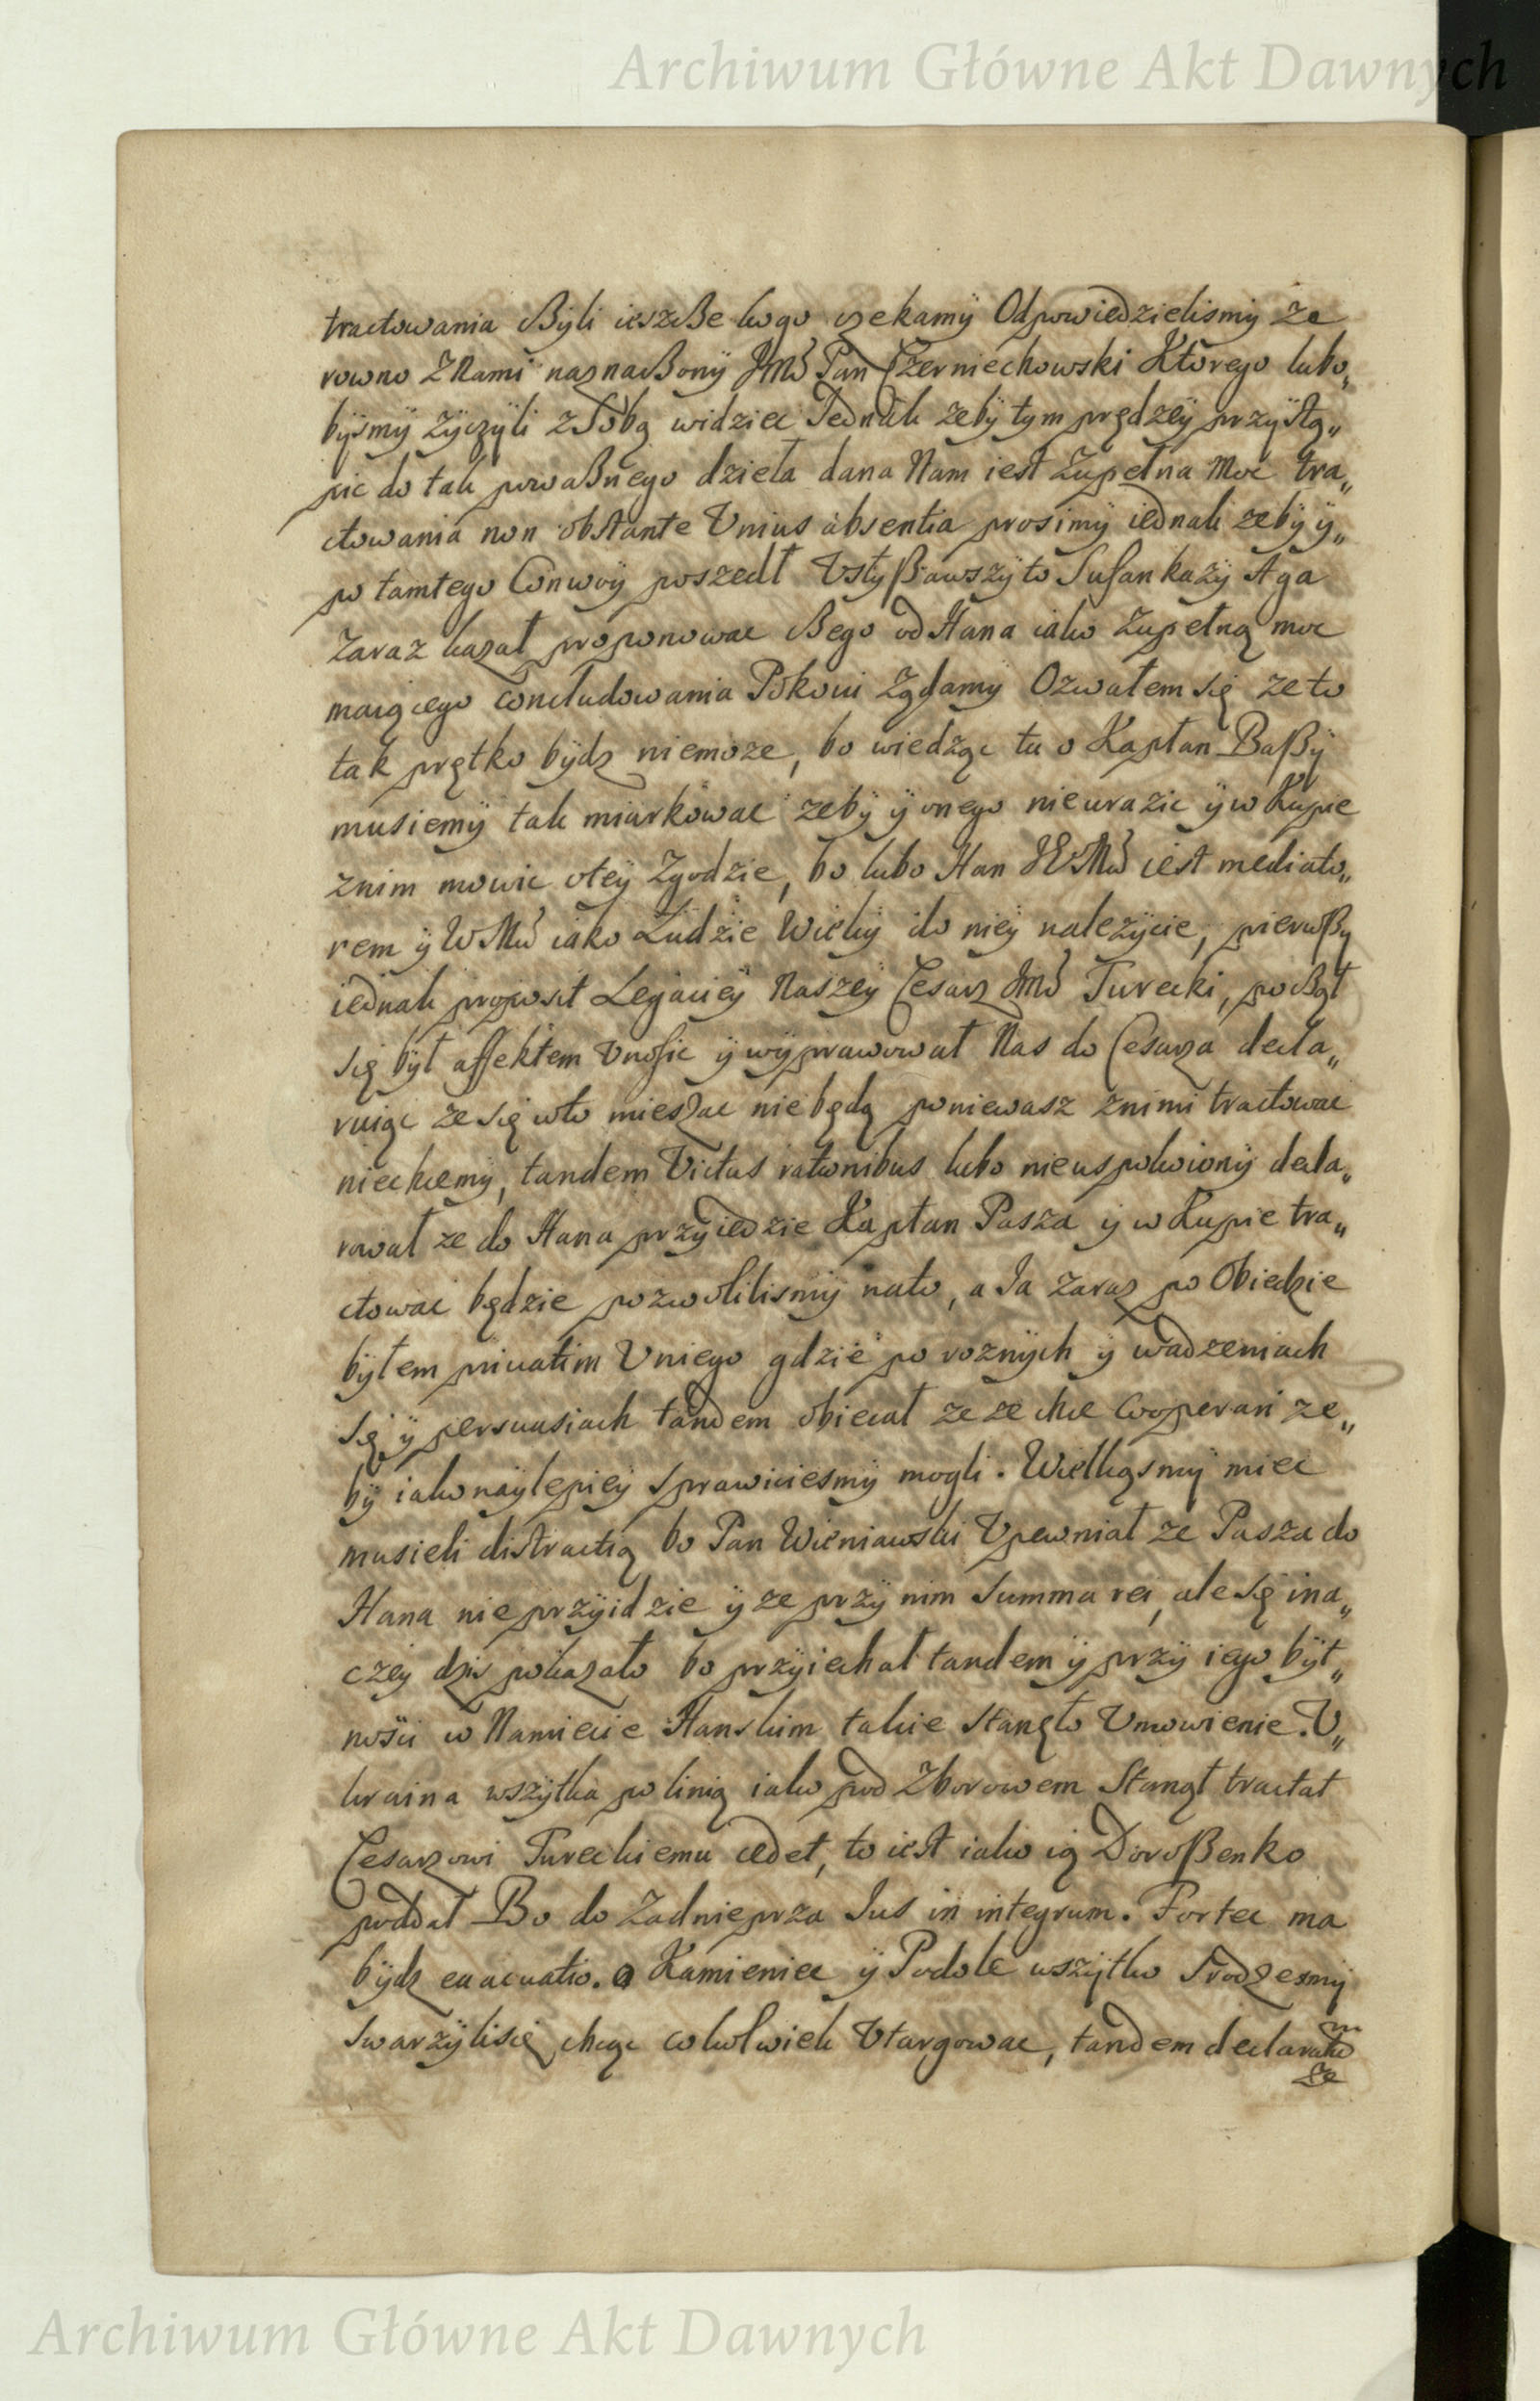 Archiwum Główne Akt Dawnych
tractowania Byli ieszBe kogo czekamÿ OdpowiedzielismÿZe
rowno ZNami naznaBonÿ JMć Pan Czerniechowski Ktorego lubo„
bÿsmÿ życzÿli zSobą widziec Jednak zebÿ tym prędzeÿ przÿstą„
pic do tak powaBnego dzieła dana Nam iest Zupełna Moc tra„
ctowania non obstante Vnius absentia prosimÿ iednak zebÿ ÿ„
po tamtego Conwoÿ poszedł VsłyßawszÿTo Sufankazÿ Aga
Zaraz kazał proponowac Bego od Hana iako Zupełną moc
maiącego concludowania Pokoiu Ządamÿ Ozwałem się ze to
tak prętko bÿdz niemoze, bo wiedząc tu o Kapłan Baßÿ
musiemÿ tak miarkowac zebÿ ÿ onego nieurazic ÿ w Kupie
znim mowic oteÿ Zgodzie, bo lubo Han JEoMć iest mediato„
rem ÿ WMć iako Ludzie Wielcÿ do nieÿ nalezÿcie, pierwßy
iednak proposit Legacieÿ Naszeÿ Cesarz JMć Turecki, poBął
się bÿł affektem Vnosic ÿ wÿprawował Nas do Cesarza decla„
ruiąc ze się wto mieszac niebędą poniewasz znimi tractowac
niechcemÿ, tandem Victus rationibus lubo nieuspokoionÿ decla„
rował ze do Hana przÿiedzie Kapłan Pasza ÿ w Kupie tra„
ctowac będzie pozwolilismÿ nato, a Ja Zaraz po Obiedzie
bÿłem priuatim Vniego gdzie po roznÿch ÿ wadzeniach
się ÿ persuasiach tandem obiecał ze ze chce Cooperari ze„
bÿ iako naÿlepieÿ sprawiciesmÿ mogli. Wielkąsmÿ miec
musieli distractią bo Pan Wieniawski Vpewniał ze Pasza do
Hana nie przÿidzie ÿ ze przÿ nim Summa rei, ale się ina„
czeÿ dzis pokazało bo przÿiechał tandem ÿ przÿ iego bÿt„
nosci w Namiecie Hanskim takie stanęło Vmowienie. V„
kraina wszÿtka po linią iako pod Zborowem Stanął tractat
Cesarzowi Tureckiemu cedet, to iest iako ią Doroßenko
poddał Bo do Zadnieprza Jus in integrum. Fortec ma
bÿdz euacuatio. a Kamieniec ÿ Podole wszÿtko srodzesmÿ
swarzÿlisię chcąc cokolwiek Vtargowac, tandem declaratum
ze
Archiwum Główne Akt Dawnych